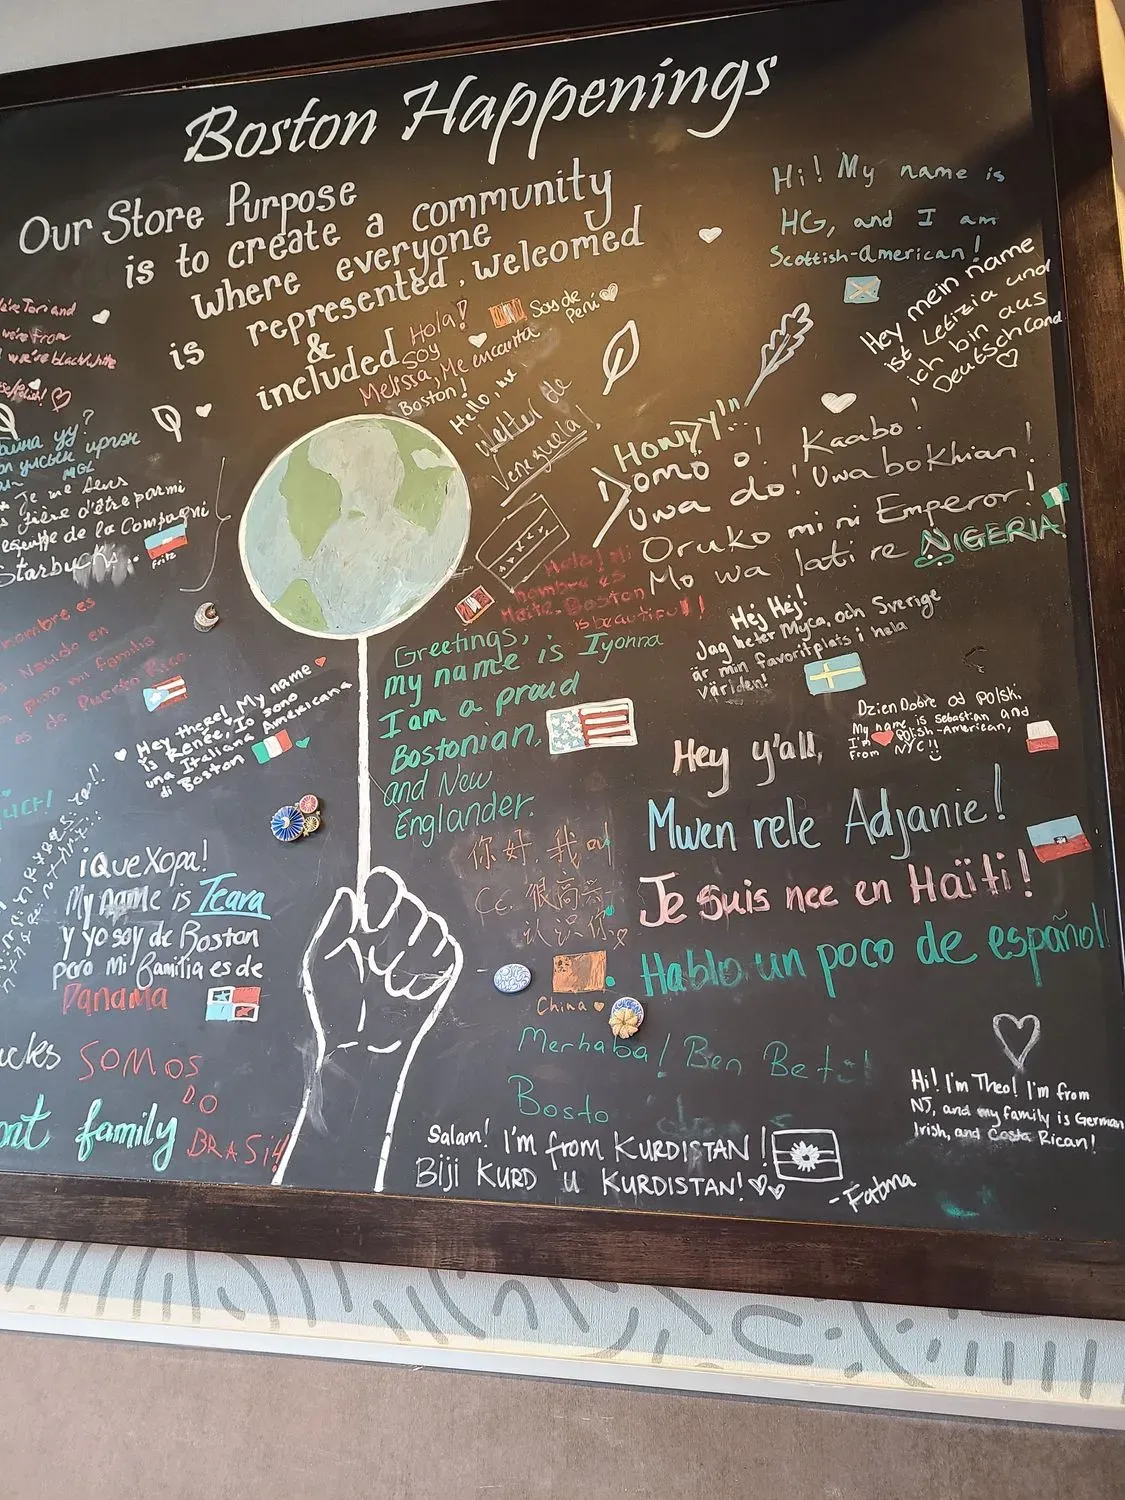 Boston Happenings
Our Store Purpose
is to create a community
where everyone
is represented, welcomed
&
included
Hi! My name is
HG, and I am
Scottish-American!
Hey mein name
ist Letizia und
ich bin aus
Deutschland
Hola!
Soy
Melissa, Me encanta
Boston!
Soy de
Perú
Hello, me
Walter de
Venezuela!
Howdy!
omo o! Kaabo!
Uwa do! Uwa bo Khian!
Oruko mi ni Emperor!
Mo wa lati re NIGERIA!
we're from
we're black/white
Je me sens
fière d'être parmi
de la Compagni
Starbuck
Fritz
nombre es
Nacido en
pero mi familia
es de Puerto Rico
Hola! Mi
nombre es
Maite. Boston
is beautiful!!
Greetings,
my name is Iyonna
I am a proud
Bostonian,
and New
Englander.
Hej Hej!
Jag heter Myca, och Sverige
är min favoritplats i hela
världen!
Dzien Dobre od polski.
My name is Sebastian and
I'm Polish-American,
From NYC!!
Hey there! My name
is Renée, Io sono
una Italiana Americana
di Boston
Hey y'all,
Mwen rele Adjanie!
Je suis nee en Haïti!
Hablo un poco de español
你好,我叫
Ce 很高兴
认识你
China
¡Que Xopa!
My name is Teara
y yo soy de Boston
pero mi familia es de
Panama
SOMOS
DO
BRASil!
family
Merhaba! Ben Betül
Bosto
Salam! I'm from KURDISTAN!
Biji KURD u KURDISTAN!
-Fatma
Hi! I'm Theo! I'm from
NJ, and my family is German
Irish, and Costa Rican!